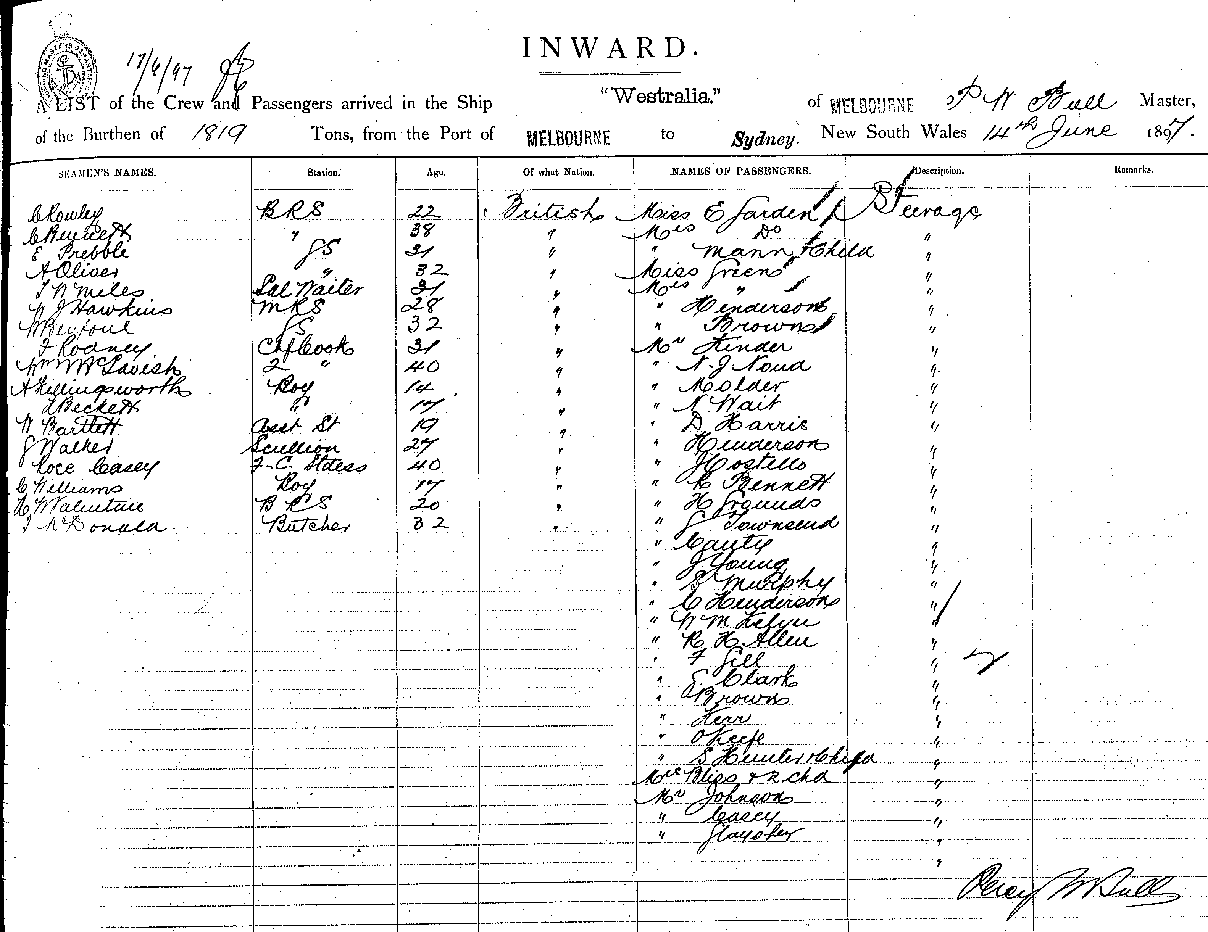 INWARD.
17/6/97
"Westralia."
A LIST of the Crew and Passengers arrived in the Ship of MELBOURNE P W Bull Master,
of the Burthen of 1819 Tons, from the Port of MELBOURNE to Sydney. New South Wales 14th June 1897.
SEAMEN'S NAMES. Station. Age. Of what Nation. NAMES OF PASSENGERS. Description. Remarks.
C Rowley B.R.S 22 British Miss E Garden Steerage
C 38 " Mrs Do "
E Prebble 31 " " Mann + Child "
A Oliver " 32 " Miss Greens "
Miles Sal Waiter 31 " Mrs " "
W J Hawkins M.R.S 28 " " Henderson "
W 32 " " Brown "
F Rodney Chf Cook 31 " Mr Kinder "
Wm McTavish 2 " 40 " " N. J. "
A Killingsworth Boy 14 " " Molder "
Beckett " 17 " " N Wait "
W Bartlett Asst St 19 " " D Harris "
J Walker Scullion 27 " " Henderson "
Rose Casey F.C. Stdess 40 " " J Costello "
C Williams Boy 17 " " R Bennett "
Valentine B R S 20 " " H Grounds "
J McDonald Butcher 32 " " G Townsend "
" Canty "
" J Young "
" S Murphy "
" C Henderson "
" W M "
" R H Allen "
" F Gill "
" E Clark "
" Brown "
" Kerr "
" O'Keefe "
" S Hunter + Child "
Mrs Bliss + 2 chd "
Mr Johnson "
" Casey "
" "
Percy W Bull